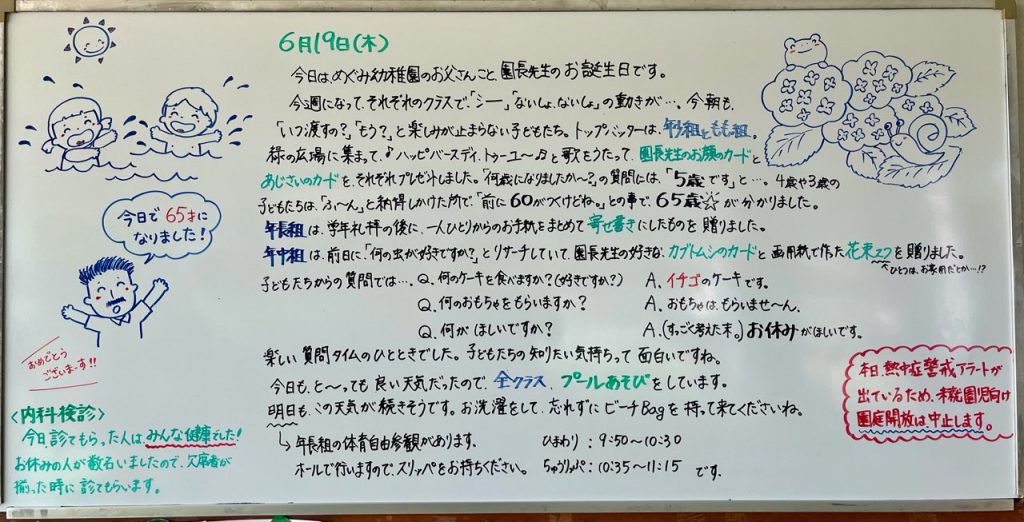 6月19日(木)
今日は、めぐみ幼稚園のお父さんこと、園長先生のお誕生日です。
今週になって、それぞれのクラスで、「シー」、「ないしょ、ないしょ」の動きが…。今朝も、
「いつ渡すの?」、「もう?」と楽しみが止まらない子どもたち。トップバッターは、年少組ともも組。
緑の広場に集まって、♪ハッピバースディ、トゥーユ〜♫と歌をうたって、園長先生のお顔のカードと
あじさいのカードを、それぞれプレゼントしました。「何歳になりましたか〜?」の質問には、「5歳です」と…。4歳や3歳の
子どもたちは、「ふ〜ん」と納得しかけた所で、「前に60がつくけどね。」との事で、65歳☆が分かりました。
年長組は、学年礼拝の後に、一人ひとりからのお手紙をまとめて寄せ書きにしたものを贈りました。
年中組は、前日に、「何の虫が好きですか?」とリサーチしていて、園長先生の好きな、カブトムシのカードと画用紙で作た花束2つを贈りました。
ひとつは、お家用だとか…!?
子どもたちからの質問では…、Q. 何のケーキを食べますか?(好きですか?) A. イチゴのケーキです。
Q. 何のおもちゃをもらいますか? A. おもちゃは、もらいませ〜ん。
Q. 何がほしいですか? A.(すっごく考えた末。)お休みがほしいです。
楽しい質問タイムのひとときでした。子どもたちの知りたい気持ちって面白いですね。
今日も、と〜っても良い天気だったので、全クラス、プールあそびをしています。
明日も、この天気が続きそうです。お洗濯をして、忘れずにビーチBagを持って来てくださいね。
↳年長組の体育自由参観があります。 ひまわり:9:50〜10:30
ホールで行いますので、スリッパをお持ちください。 ちゅうりっぷ:10:35〜11:15 です。
今日で65才に
なりました!
おめでとう
ございまーす!!
〈内科検診〉
今日診てもらった人は、みんな健康でした!
お休みの人が数名いましたので、欠席者が
揃った時に診てもらいます。
本日、熱中症警戒アラートが
出ているため、未就園児向け
園庭開放は、中止します。